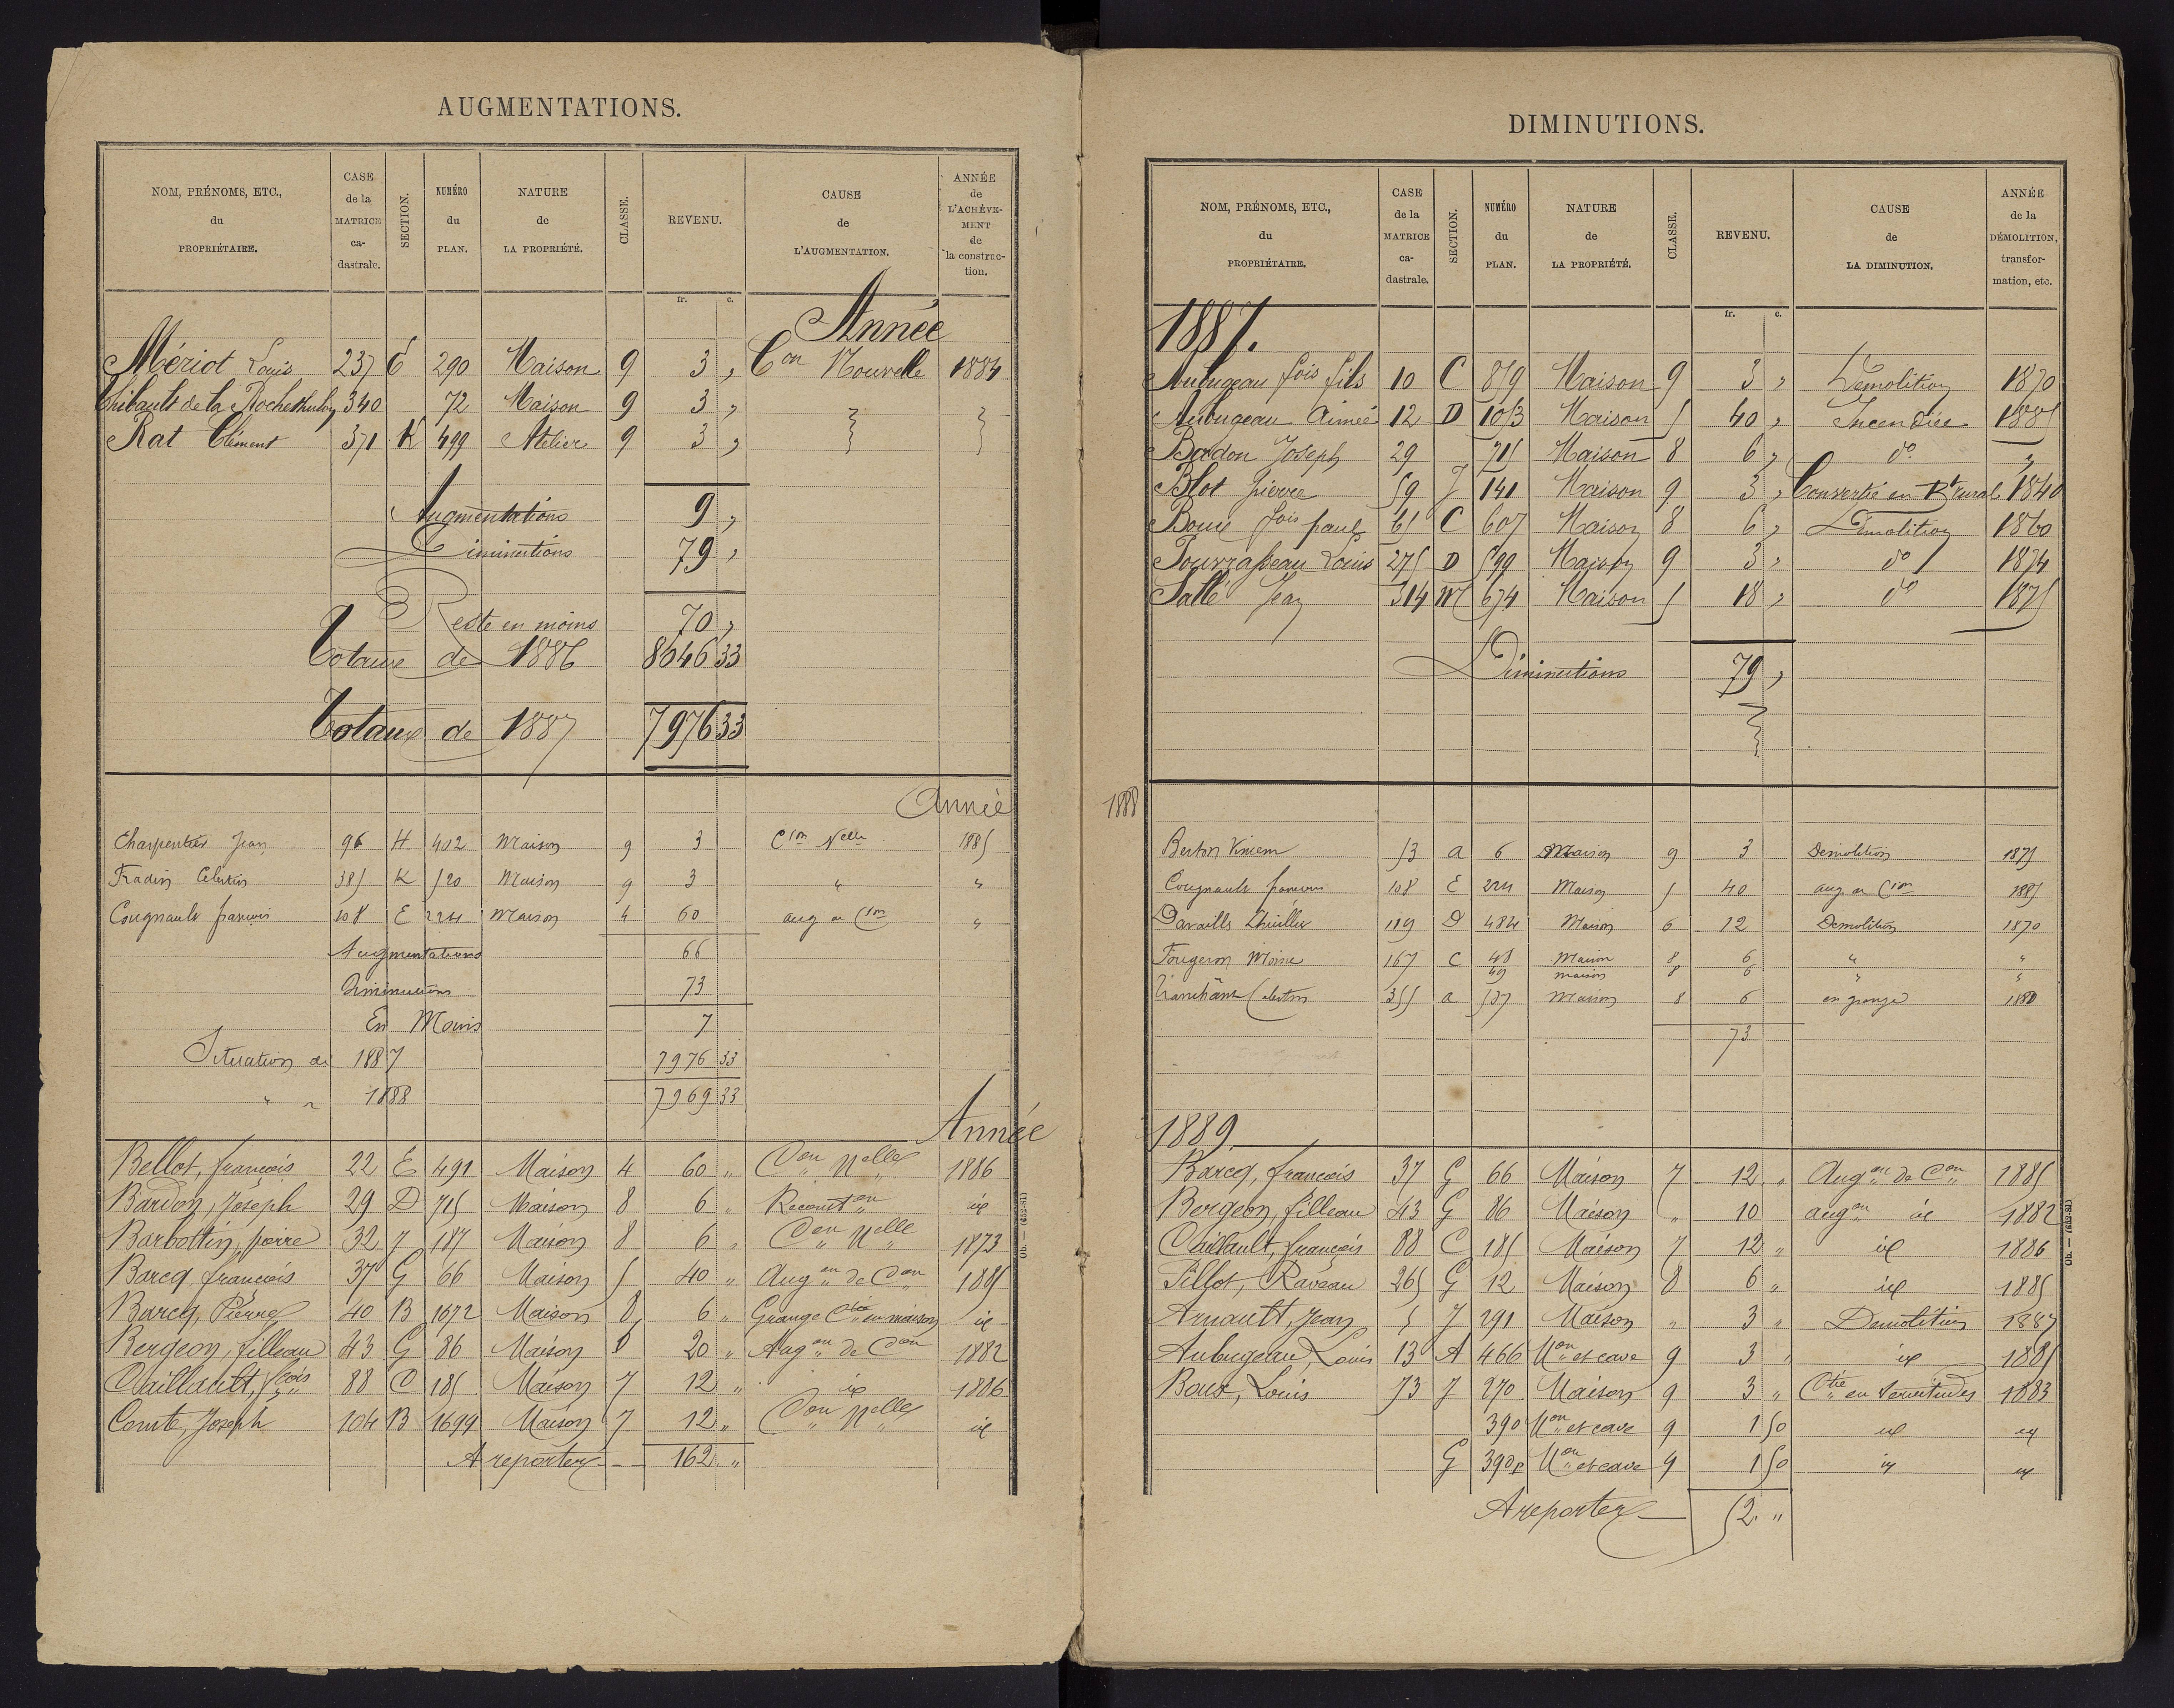 AUGMENTATIONS.
NOM, PRÉNOMS, ETC., du PROPRIÉTAIRE. CASE de la MATRICE ca-dastrale. SECTION. NUMÉRO du PLAN. NATURE de LA PROPRIÉTÉ. CLASSE. REVENU. CAUSE de L'AUGMENTATION. ANNÉE de L'ACHÈVE-MENT de la construc-tion.
fr. c.
Année
Mériot Louis 237 E 290 Maison 9 3 " Con Nouvelle 1884
Thibault de la Rochethulon 340 72 Maison 9 3 "
Rat Clément 371 K 499 Atelier 9 3 "
Augmentations 9 "
Diminutions 79 "
Reste en moins 70 "
Totaux de 1886 8646 33
Totaux de 1887 7976 33
Année
Charpentier Jean 96 H 402 Maison 9 3 Cion Nelle 1885
Fradin Célestin 385 K 520 Maison 9 3 " "
Cougnault françois 108 E 224 Maison 4 60 aug on Cion "
Augmentations 66
Diminutions 73
En Moins 7
Situation de 1887 7976 33
" " 1888 7969 33
Année
Bellot, françois 22 E 491 Maison 4 60 " Con Nelle 1886
Bardon, Joseph 29 D 715 Maison 8 6 " Reconston id
Barbottin, pierre 32 J 187 Maison 8 6 " Con Nelle 1873
Barcq françois 37 G 66 Maison 5 40 " Augon de Con 1885
Barcq, Pierre 40 B 1672 Maison 8 6 " Grange Ctie en maison id
Bergeon, filleau 43 G 86 Maison 6 20 " Augon de Con 1882
Caillault, fcois 88 C 185 Maison 7 12 " id 1886
Comte, Joseph 104 B 1699 Maison 7 12 " Con Nelle id
A reporter 162 "
Ob. — (652-81)
DIMINUTIONS.
NOM, PRÉNOMS, ETC., du PROPRIÉTAIRE. CASE de la MATRICE ca-dastrale. SECTION. NUMÉRO du PLAN. NATURE de LA PROPRIÉTÉ. CLASSE. REVENU. CAUSE de LA DIMINUTION. ANNÉE de la DÉMOLITION, transfor-mation, etc.
fr. c.
1887.
Aubugeau fois fils 10 C 879 Maison 9 3 " Démolition 1870
Aubugeau Aimée 12 D 1053 Maison 5 40 " Incendiée 1885
Badon Joseph 29 715 Maison 8 6 " do "
Blot pierre 59 J 141 Maison 9 3 " Convertie en Bt rural 1840
Boué fois paul 65 C 607 Maison 8 6 " Démolition 1860
Pourrasseau Louis 275 D 599 Maison 9 3 " do 1874
Sallé Jean 314 M 674 Maison 5 18 " do 1875
Diminutions 79 "
1888
Berton 53 a 6 Maison 9 3 Demolition 1875
Cougnault françois 108 E 224 Maison 5 40 aug on Cion 1885
Davaills 119 D 484 Maison 6 12 Demolition 1870
Fougeron Moine 167 C 48 Maison 8 6 " "
49 maison 8 6 " "
Tranchant Célestin 355 a 537 Maison 8 6 en grange 1880
73
1889
Barcq, françois 37 G 66 Maison 7 12 " Augon de Con 1885
Bergeon, filleau 43 G 86 Maison " 10 augon id 1882
Caillault, françois 88 C 185 Maison 7 12 " id 1886
Pillot, Raveau 265 G 12 Maison 8 6 " id 1885
Arnault, Jean 5 J 291 Maison " 3 " Demolition 1887
Aubugeau, Louis 13 A 466 Mon et cave 9 3 " id 1885
Boux, Louis 73 J 270 Maison 9 3 " Ctie en Servitudes 1883
390 Mon et cave 9 1 50 id id
G 390p Mon et cave 9 1 50 id id
A reporter 52 "
Ob. — (652-81)